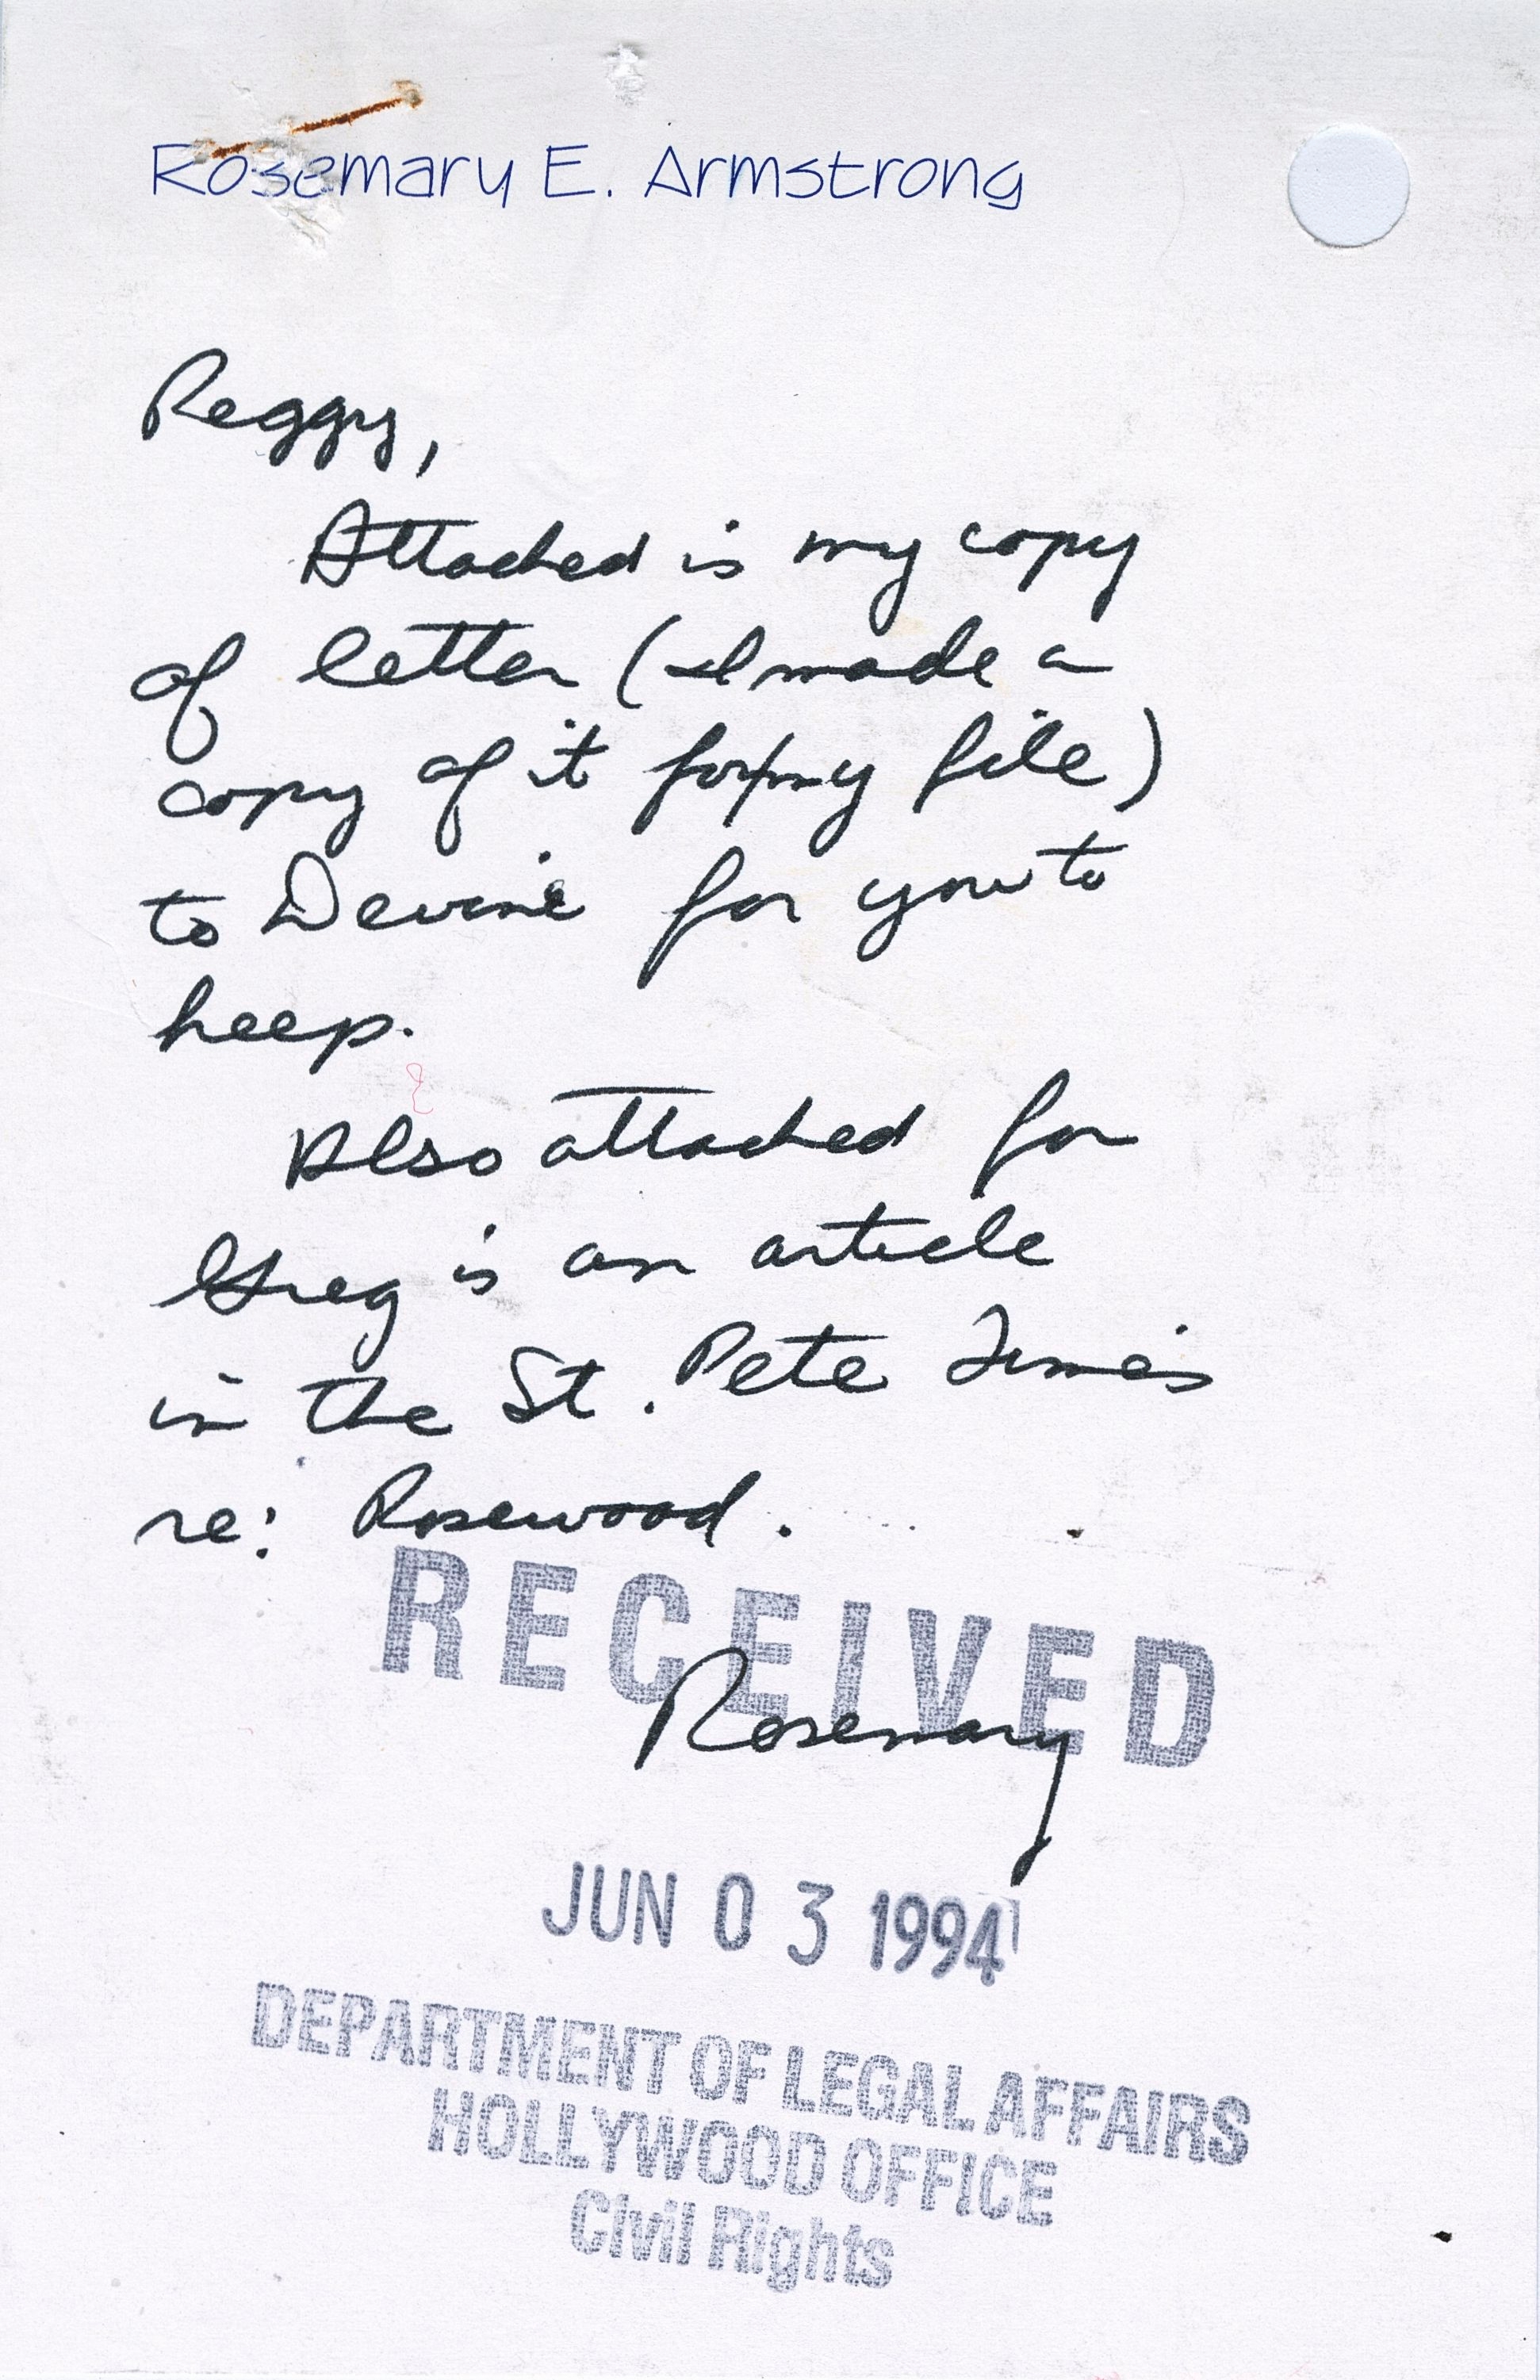 Rosemary E. Armstrong
Reggy,
Attached is my copy
of letter (I made a
copy of it for/my file)
to Devine for you to
keep.
Also attached for
Greg is an article
in the St. Pete Times
re: Rosewood.
RECEIVED
Rosemary
JUN 03 1994
DEPARTMENT OF LEGAL AFFAIRS
HOLLYWOOD OFFICE
Civil Rights